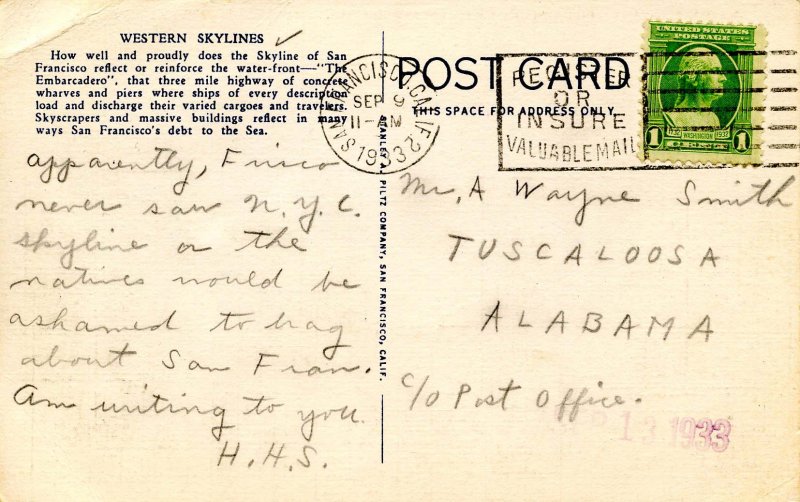 WESTERN SKYLINES
How well and proudly does the Skyline of San
Francisco reflect or reinforce the water-front—"The
Embarcadero", that three mile highway of concrete
wharves and piers where ships of every description
load and discharge their varied cargoes and travelers.
Skyscrapers and massive buildings reflect in many
ways San Francisco's debt to the Sea.
apparently, Frisco
never saw N.Y.C.
skyline or the
natives would be
ashamed to brag
about San Fran.
Am writing to you.
H.H.S.
STANLEY A. PILTZ COMPANY, SAN FRANCISCO, CALIF.
SAN FRANCISCO, CALIF.
SEP 9
11-AM
1933
2
POST CARD
THIS SPACE FOR ADDRESS ONLY
REGISTER
OR
INSURE
VALUABLE MAIL
UNITED STATES
POSTAGE
1732 WASHINGTON 1932
1 1
Mr. A Wayne Smith
TUSCALOOSA
ALABAMA
c/o Post Office.
13 1933